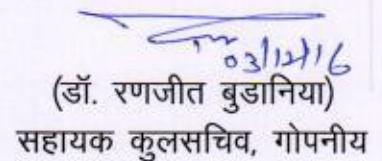 03/12/16
(डॉ. रणजीत बुडानिया)
सहायक कुलसचिव, गोपनीय